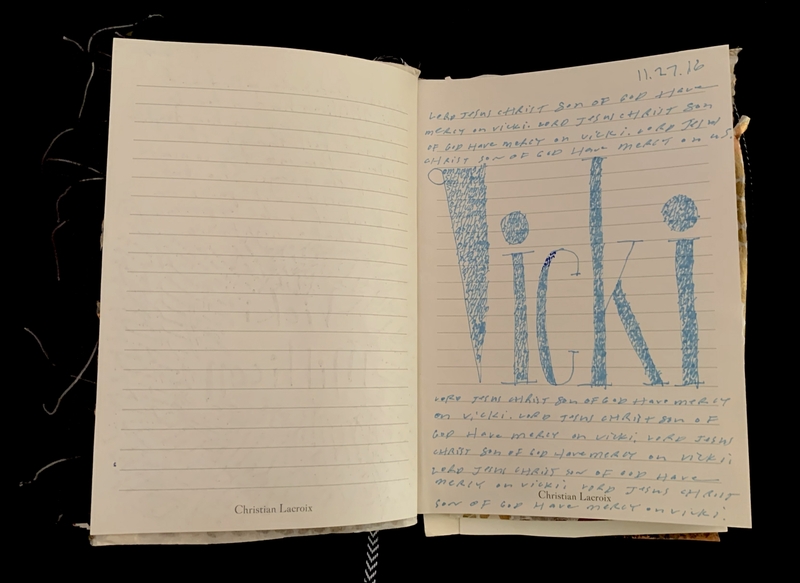 Christian Lacroix
11.27.16
LORD JESUS CHRIST SON OF GOD Have
mercy on vicki. LORD JESUS CHRIST SON
OF GOD Have mercy on vicki. LORD JESUS
CHRIST SON OF GOD Have mercy on us.
Vicki
LORD JESUS CHRIST SON OF GOD Have mercy
on vicki. LORD JESUS CHRIST SON OF
GOD Have mercy on vicki. LORD JESUS
CHRIST SON OF GOD Have mercy on vicki.
LORD JESUS CHRIST SON OF GOD Have
mercy on vicki LORD JESUS CHRIST
Christian Lacroix
SON OF GOD Have mercy on vicki.